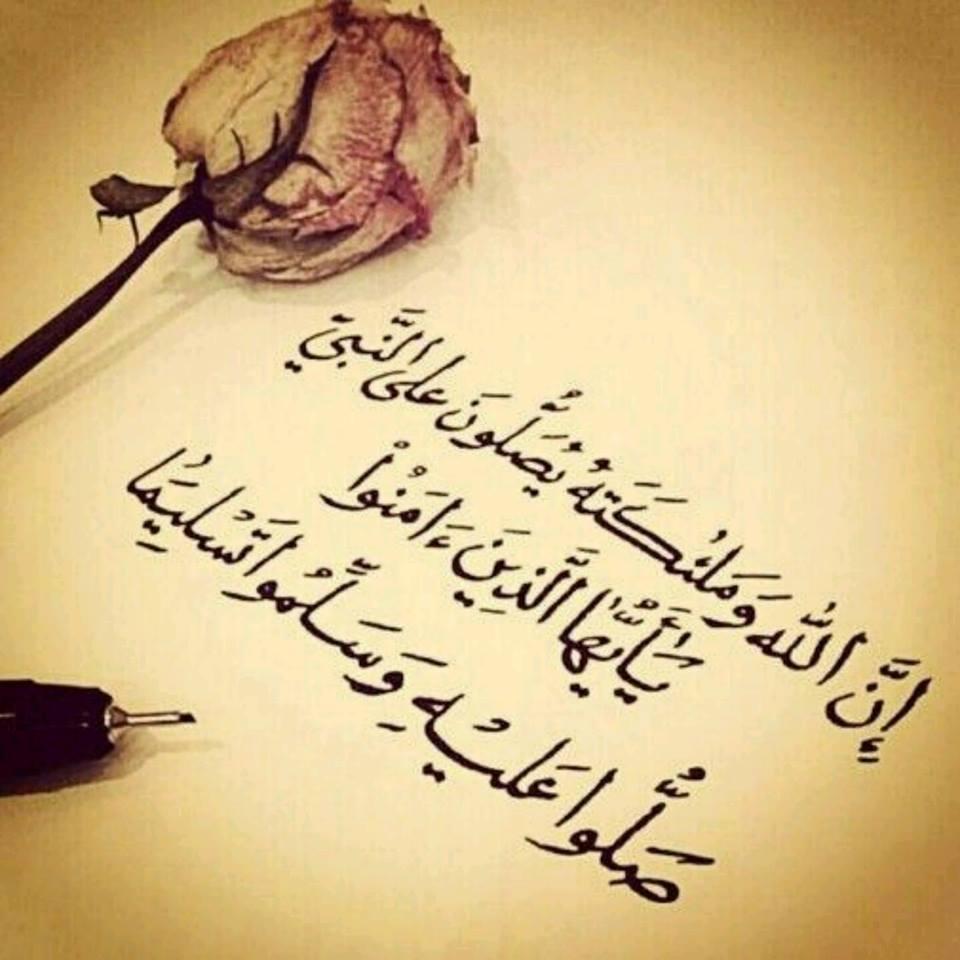 إِنَّ اللّٰه وَمَلٰئكَتَهُ يُصَلُّونَ على النَّبيّ
يَٰأَيُّهَا الَّذِينَ ءَامَنُواْ
صَلُّوا عَلَيْهِ وَسَلِّمُوا تَسْلِيمًا